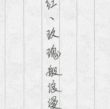 红、玫瑰般浪漫